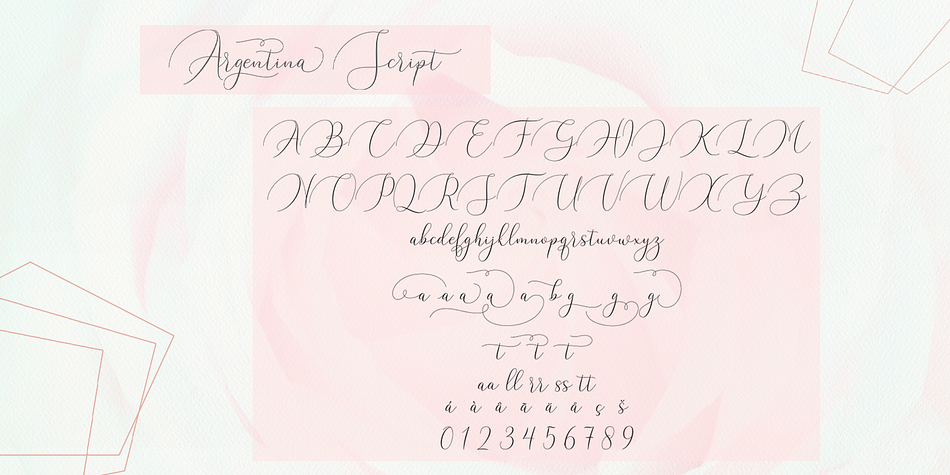 Argentina Script
A B C D E F G H I J K L M
N O P Q R S T U V W X Y Z
abcdefghijkllmnopqrstuvwxyz
a a a a a b g g g
t t t
aa ll rr ss tt
á à â ã ä å ç š
0 1 2 3 4 5 6 7 8 9